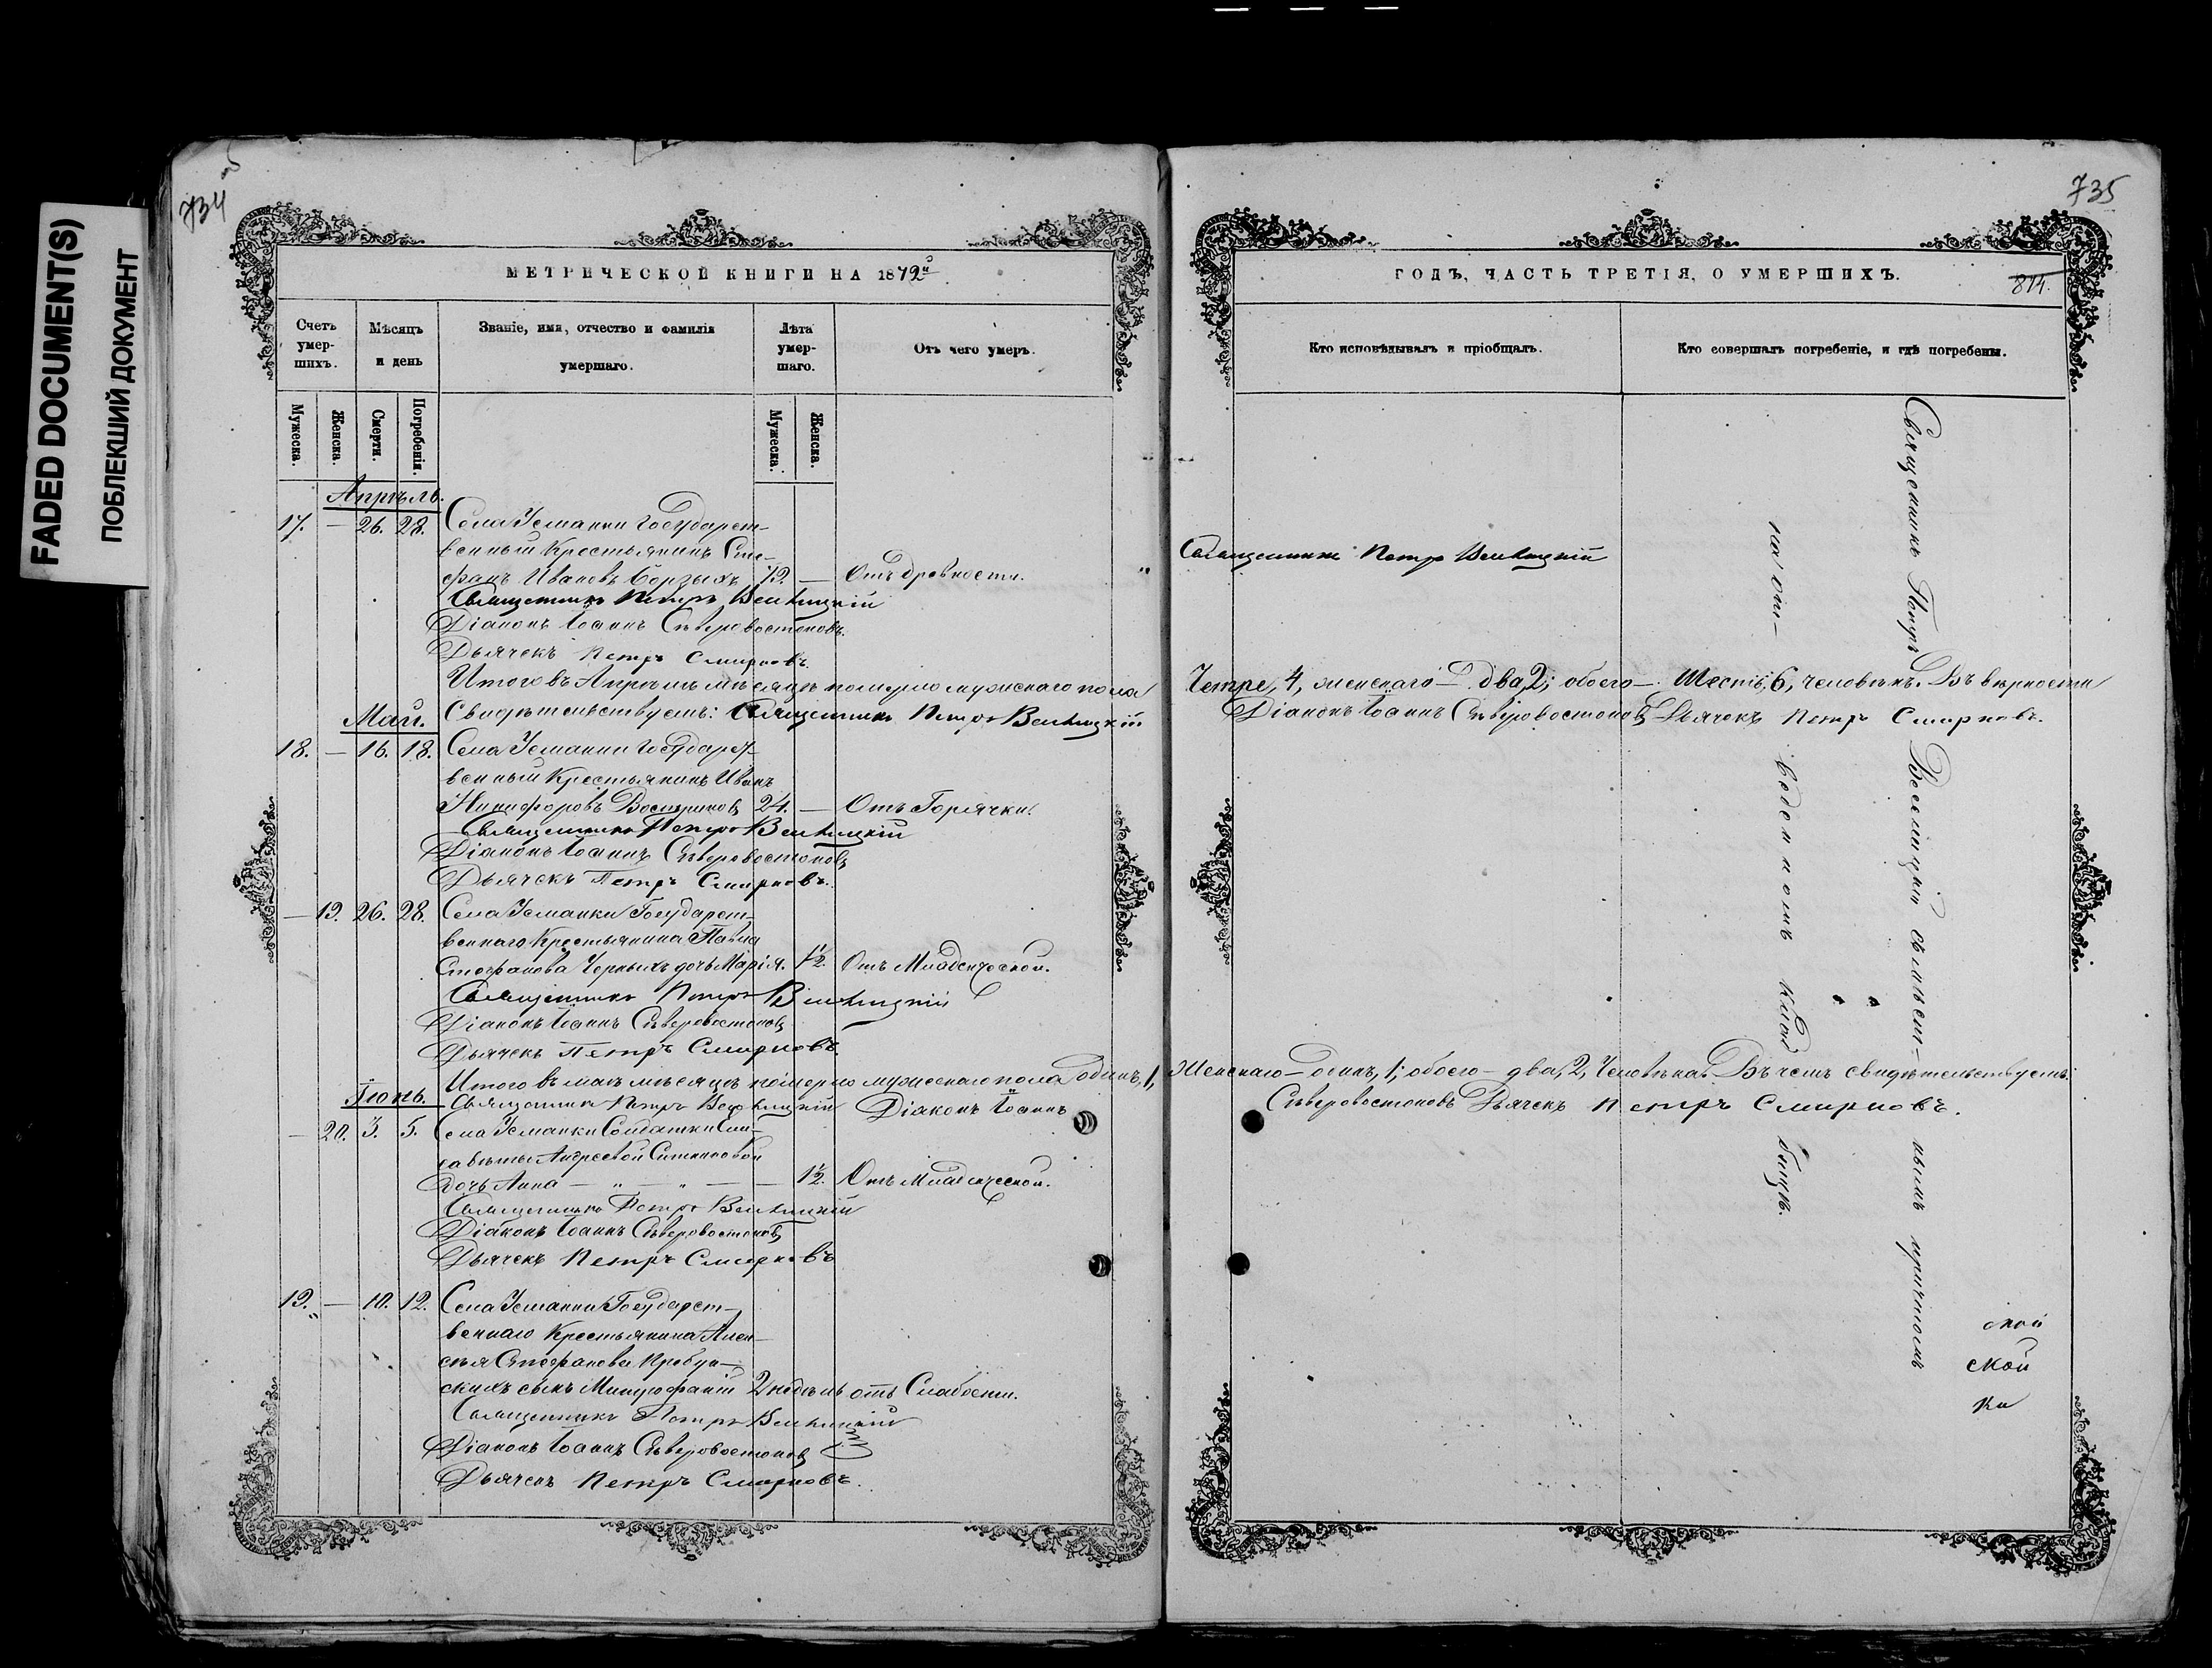 FADED DOCUMENT(S)
ПОБЛЕКШИЙ ДОКУМЕНТ
734
МЕТРИЧЕСКОЙ КНИГИ НА 1872й
Счетъ умер-шихъ.
Мѣсяцъ и день
Званіе, имя, отчество и фамилія умершаго.
Лѣта умер-шаго.
Отъ чего умеръ.
Мужеска.
Женска.
Смерти.
Погребенія.
Мужеска.
Женска.
Апрѣль.
17. — 26. 28. Села Усманки Государст-
венный Крестьянинъ Сте-
фанъ Ивановъ Борзыхъ 72. — Отъ древности.
Священникъ Петръ
Діаконъ Іоаннъ Сѣверовостоковъ.
Дьячекъ Петръ Смирновъ.
Итого въ Апрѣлѣ мѣсяцѣ померло мужескаго пола
Май. Свидѣтельствуемъ: Священникъ Петръ
18. — 16. 18. Села Усманки Государст-
венный Крестьянинъ Иванъ
Никифоровъ Востриковъ 24. — Отъ Горячки.
Священникъ Петръ
Діаконъ Іоаннъ Сѣверовостоковъ
Дьячекъ Петръ Смирновъ.
— 19. 26. 28. Села Усманки Государст-
веннаго Крестьянина Павла
Стефанова Черныхъ дочь Марія. 1½ Отъ Младенческой.
Священникъ Петръ
Діаконъ Іоаннъ Сѣверовостоковъ
Дьячекъ Петръ Смирновъ.
Итого въ маѣ мѣсяцѣ померло мужескаго пола одинъ, 1,
Іюнь. Священникъ Петръ Діаконъ Іоаннъ
— 20. 3. 5. Села Усманки Солдатки Ели-
саветы Андреевой
дочь Анна — „ — „ — — 1½ Отъ Младенческой.
Священникъ Петръ
Діаконъ Іоаннъ Сѣверовостоковъ
Дьячекъ Петръ Смирновъ
19. — 10. 12. Села Усманки Государст-
веннаго Крестьянина Алек-
сѣя Стефанова
сынъ Митрофаній 2 недѣль отъ Слабости.
Священникъ Петръ
Діаконъ Іоаннъ Сѣверовостоковъ
Дьячекъ Петръ Смирновъ.
735
ГОДЪ, ЧАСТЬ ТРЕТІЯ, О УМЕРШИХЪ.
814.
Кто исповѣдывалъ и пріобщалъ.
Кто совершалъ погребеніе, и гдѣ погребены.
Священникъ Петръ
Четре, 4, женскаго — два, 2; обоего — шесть, 6, человѣкъ. Въ вѣрности
Діаконъ Іоаннъ Сѣверовостоковъ Дьячекъ Петръ Смирновъ.
Женскаго — одинъ, 1; обоего — два, 2, Человѣка. Въ чемъ свидѣтельствуемъ:
Сѣверовостоковъ Дьячекъ Петръ Смирновъ.
Священникъ Петръ съ мѣст-нымъ причтомъ
на от-веденномъ кладбищѣ.
ской
ской
ка